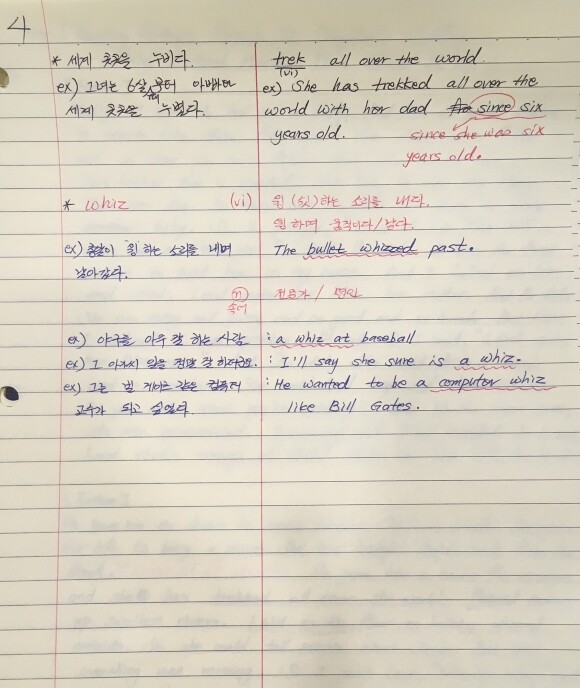 4
* 세계 곳곳을 누비다. trek all over the world.
(vi)
ex) 그녀는 6살 때부터 아빠와 ex) She has trekked all over the
세계 곳곳을 누볐다. world with her dad since six
years old. since she was six
years old.
* whiz (vi) 윙 (쉿)하는 소리를 내다.
윙 하며 움직이다/날다.
ex) 총알이 윙 하는 소리를 내며 The bullet whizzed past.
날아갔다.
(n) 전문가 / 명인
속어
ex) 야구를 아주 잘 하는 사람 : a whiz at baseball
ex) 그 아가씨 일을 정말 잘 하더군요. : I'll say she sure is a whiz.
ex) 그는 빌 게이츠 같은 컴퓨터 : He wanted to be a computer whiz
고수가 되고 싶었다. like Bill Gates.